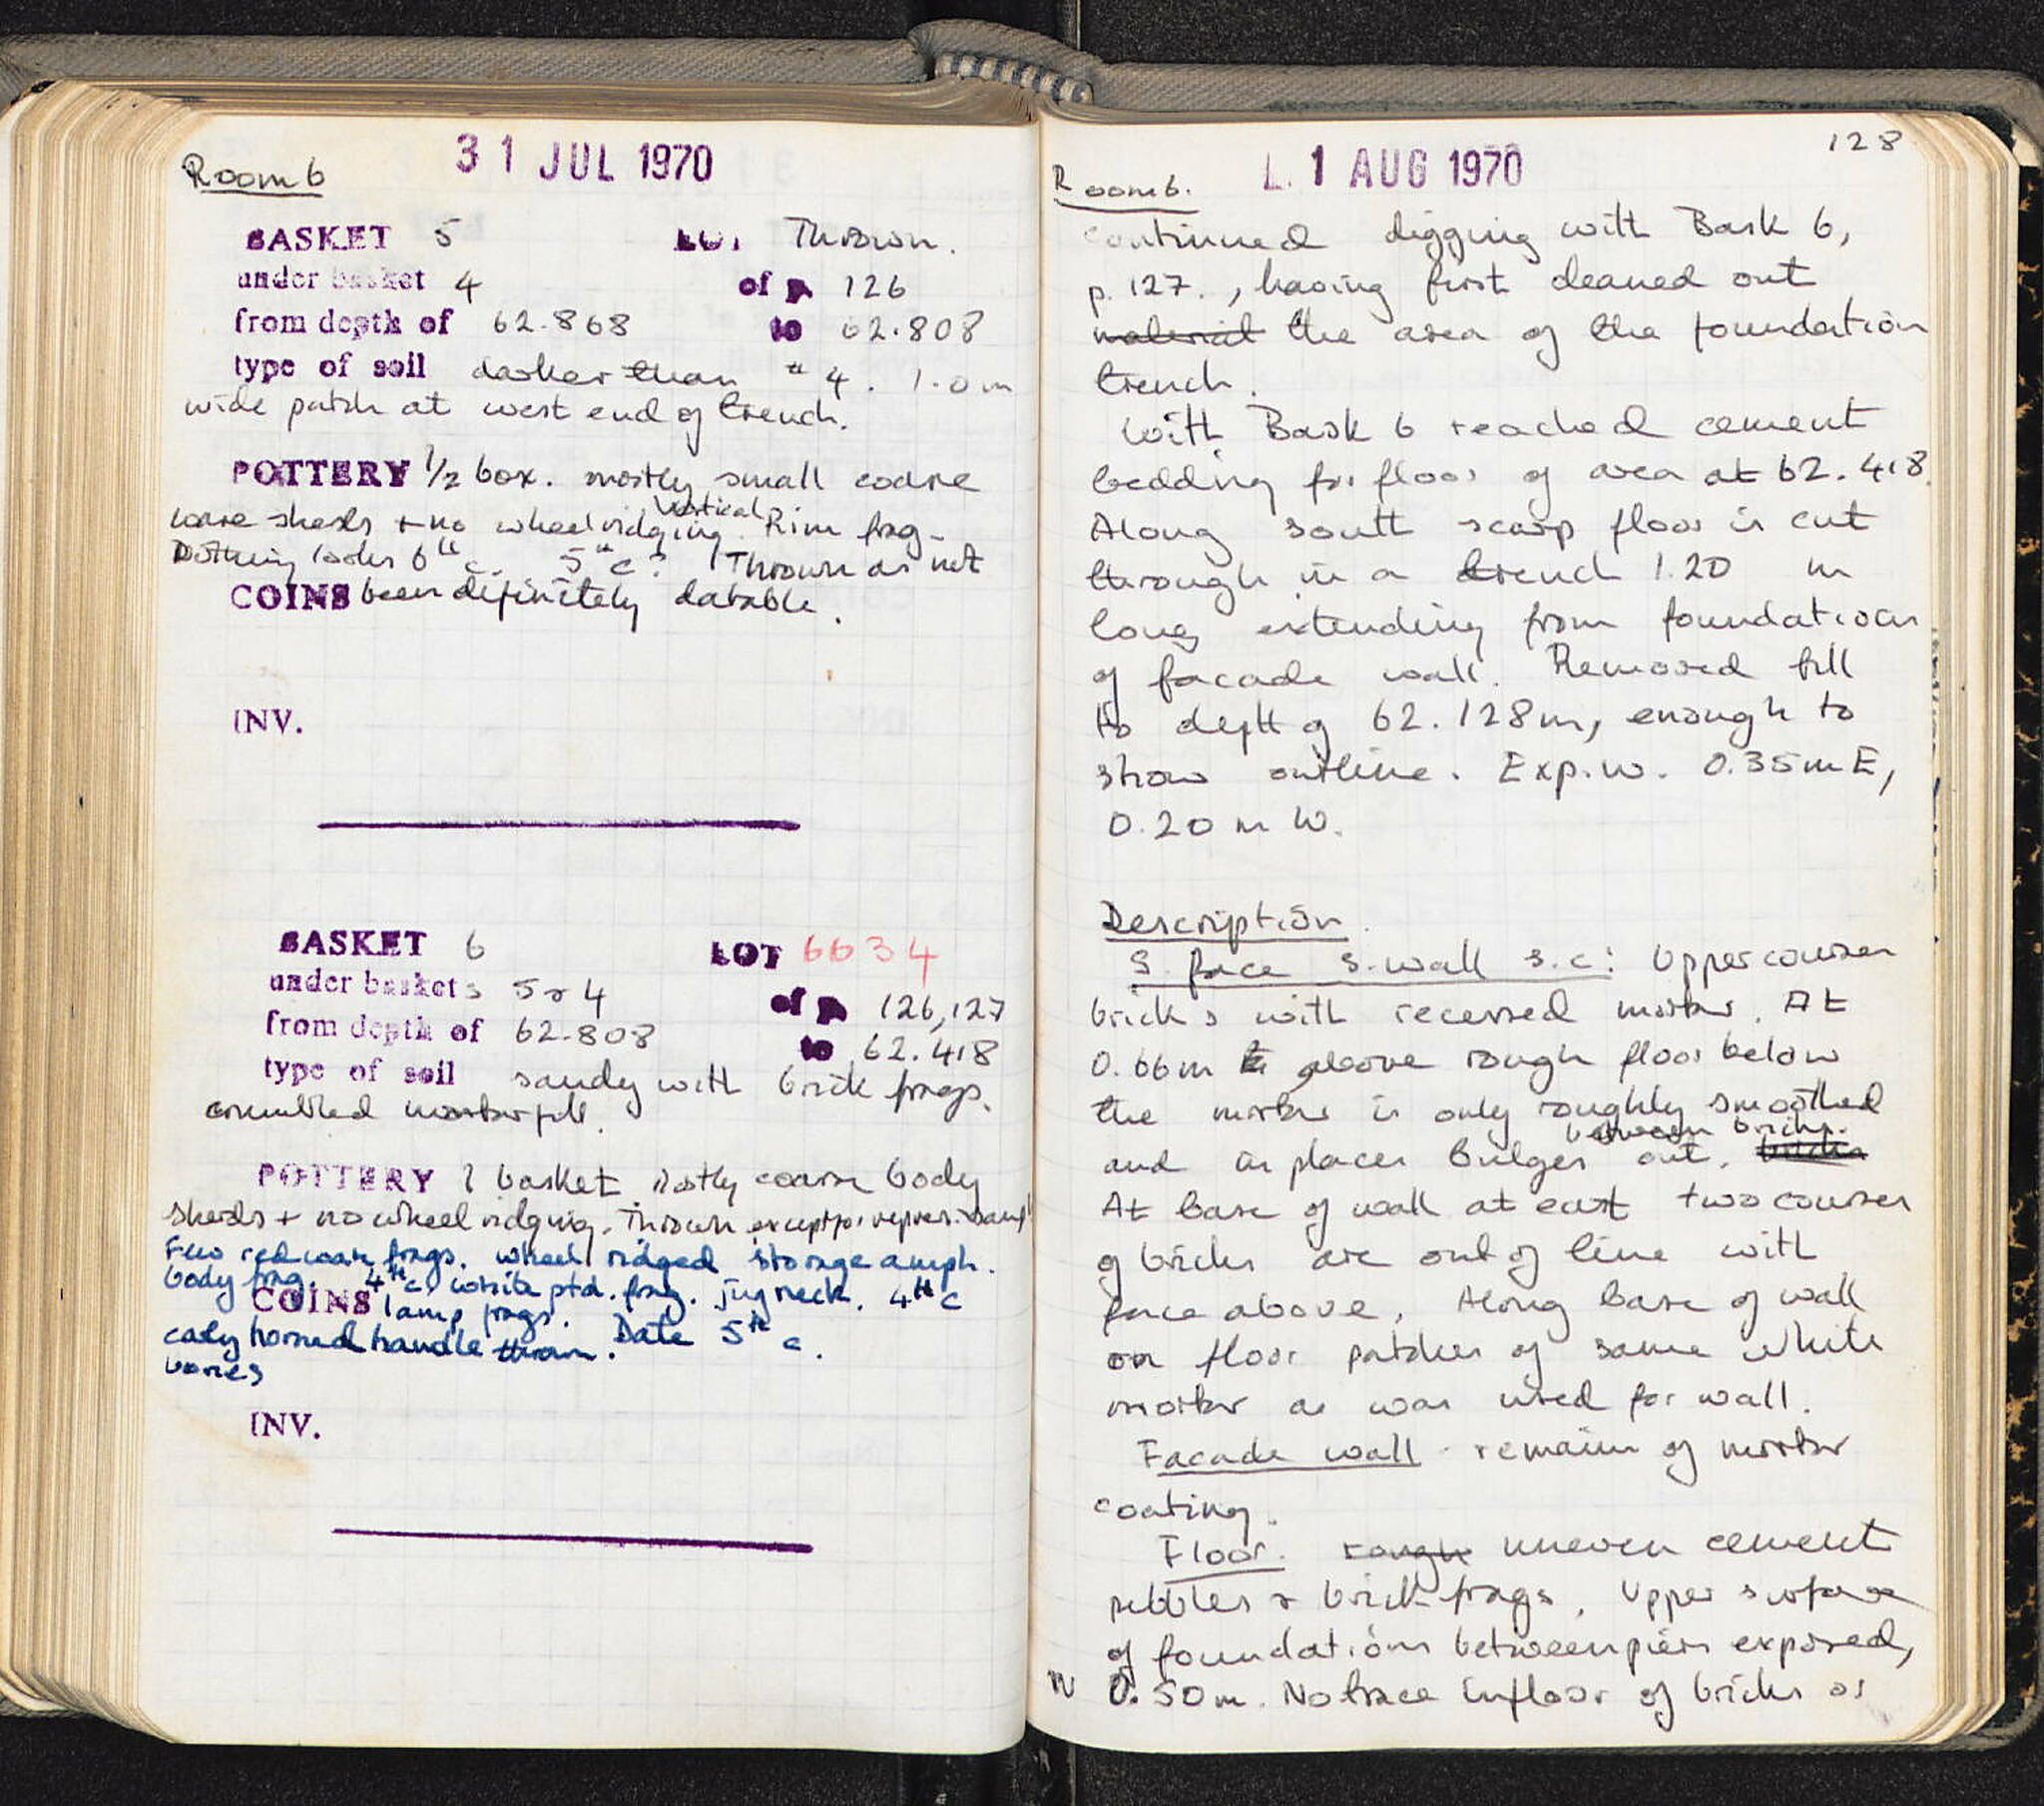 Room 6
31 JUL 1970
BASKET 5 LOT Thrown.
under basket 4 of p. 126
from depth of 62.868 to 62.808
type of soil darker than " 4. 1.0m
wide patch at west end of trench.
POTTERY 1/2 box. mostly small coarse
ware sherds + no wheelridging. Vertical Rim frag-
Nothing looks 6th c. 5th c? Thrown as not
COINS been definitely datable.
INV.
BASKET 6 LOT 6634
under baskets 5 & 4 of p 126,127
from depth of 62.808 to 62.418
type of soil sandy with brick frags.
crumbled mortar fill.
POTTERY 1 basket mostly coarse body
sherds + no wheel ridging. Thrown except for repres. samp
Few redware frags. wheel ridged storage amph.
body frag. 4th c. white ptd. frag. jug neck. 4th c
COINS lamp frags.
early horned handle thrown. Date 5th c.
bones
INV.
128
Room 6.
L. 1 AUG 1970
continued digging with Bask 6,
p. 127., having first cleaned out
material the area of the foundation
trench.
With Bask 6 reached cement
bedding for floor of area at 62.418.
Along south scarp floor is cut
through in a trench 1.20 m
long extending from foundations
of facade wall. Removed fill
to depth of 62.128m, enough to
show outline. Exp.w. 0.35m E,
0.20 m W.
Description.
S. face S. wall s.c: Upper courses
bricks with recessed mortar. At
0.66m above rough floor below
the mortar is only roughly smoothed
between bricks.
and in places bulges out. bricks
At base of wall at east two courses
of bricks are out of line with
face above. Along base of wall
on floor patches of same white
mortar as was used for wall.
Facade wall - remains of mortar
coating.
Floor. rough uneven cement
pebbles & brick frags. Upper surface
of foundations between piers exposed,
W 0.50m. No trace in floor of bricks as